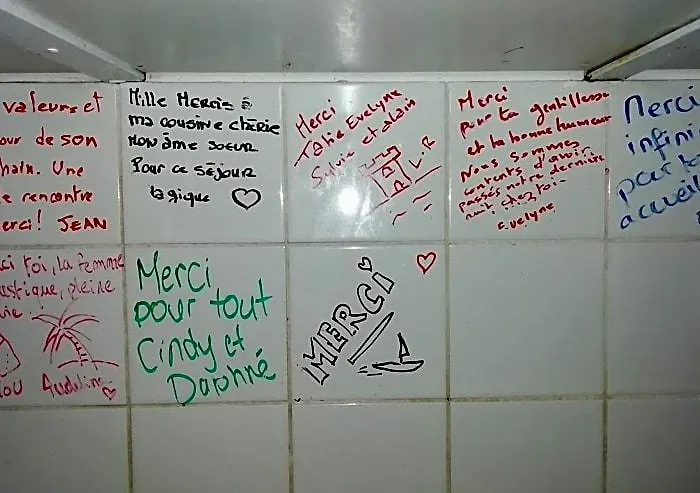 valeurs et
our de son
hain. Une
e rencontre
erci! JEAN
Mille Mercis à
ma cousine chérie
Mon âme soeur
Pour ce séjour
agique
Merci
Tatie Evelyne
Sylvie et Alain
LR
Merci
pour ta gentillesse
et ta bonne humeur
Nous sommes
contents d'avoir
passés notre dernière
nuit chez toi
Evelyne
Merci
infini
pour
accueil
ci toi, la femme
stique, pleine
vie
ou
Merci
pour tout
Cindy et
Daphné
MERCI